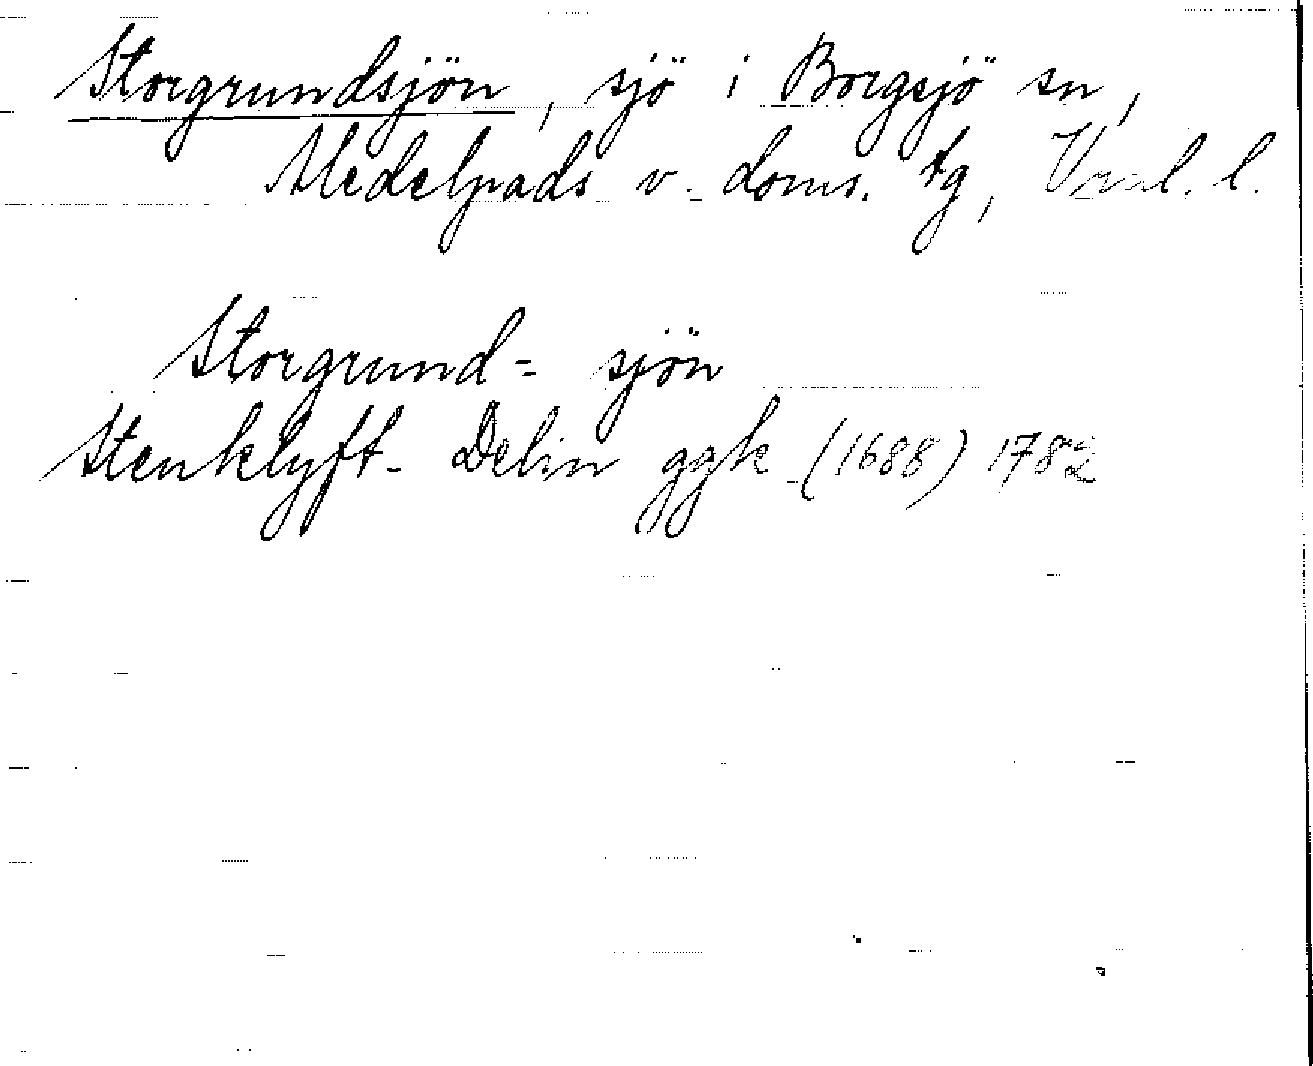 Storgrundsjön, sjö i Borgsjö sn,
Medelpads v. doms. tg, Vrnl. l.
Storgrund= sjön
Stenklyft- Delin ggk (1688) 1782